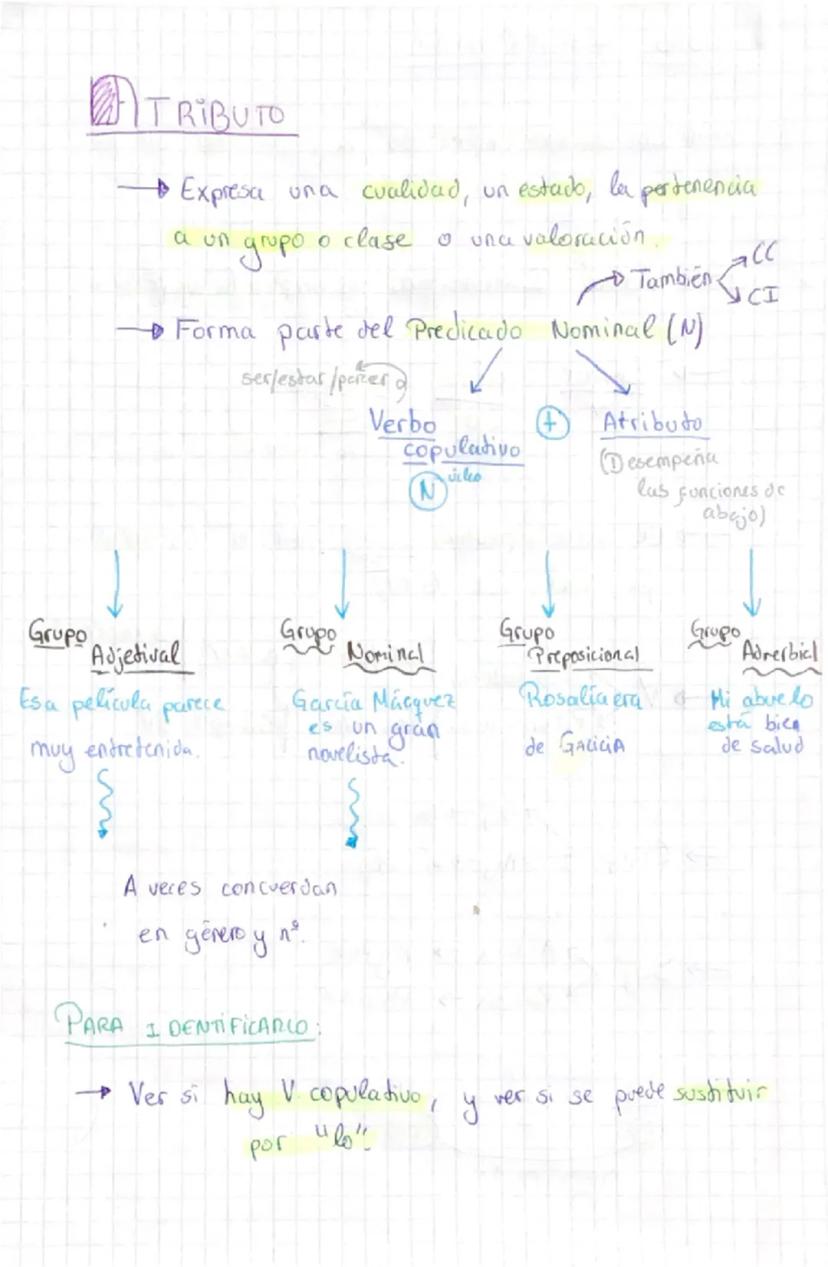 ATRIBUTO
→ Expresa una cualidad, un estado, la pertenencia
a un grupo o clase o una valoración.
→ También
CC
CI
→ Forma parte del Predicado Nominal (N)
ser/estar/parecer
Verbo
copulativo
Núcleo
+
Atributo
(Desempeña
las funciones de
abajo)
Grupo
Adjetival
Esa película parece
muy entretenida.
Grupo
Nominal
García Mácquez
es un gran
novelista.
Grupo
Preposicional
Rosalía era
de GALICIA
Grupo
Adverbial
Mi abuelo
está bien
de salud
A veces concuerdan
en género y nº.
PARA IDENTIFICARLO:
→ Ver si hay V. copulativo, y ver si se puede sustituir
por "lo".